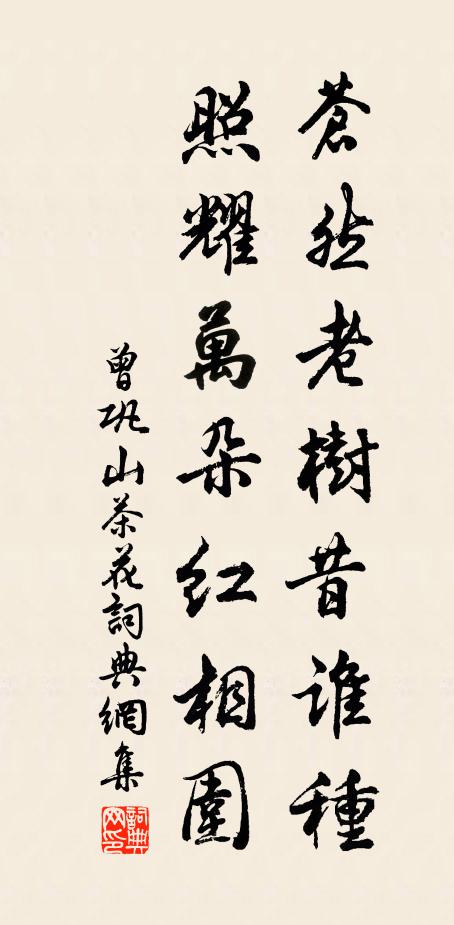 蒼然老樹昔誰種
照耀萬朶紅相圍
曾巩山茶花詞典網集
詞典網印